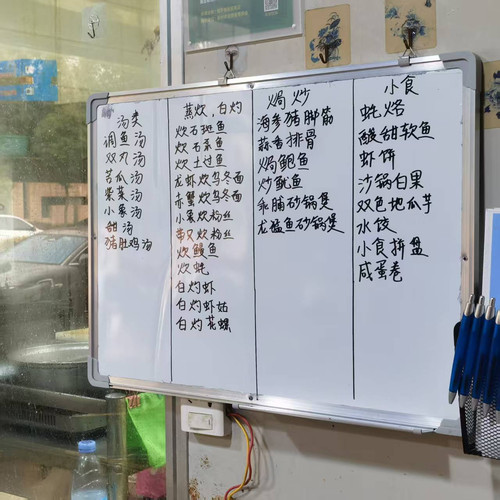 汤类
调鱼汤
双丸汤
苦瓜汤
紫菜汤
小象汤
甜汤
猪肚鸡汤
蒸炊,白灼
炊石斑鱼
炊石系鱼
炊土过鱼
龙虾炊乌冬面
赤蟹炊乌冬面
小象炊粉丝
带又炊粉丝
炊鳗鱼
炊蚝
白灼虾
白灼虾姑
白灼花螺
焗炒
海参猪脚筋
蒜香排骨
焗鲍鱼
炒鱿鱼
乳脯砂锅煲
龙猛鱼砂锅煲
小食
蚝烙
酸甜软鱼
虾饼
沙锅白果
双色地瓜芋
水饺
小食拼盘
咸蛋卷